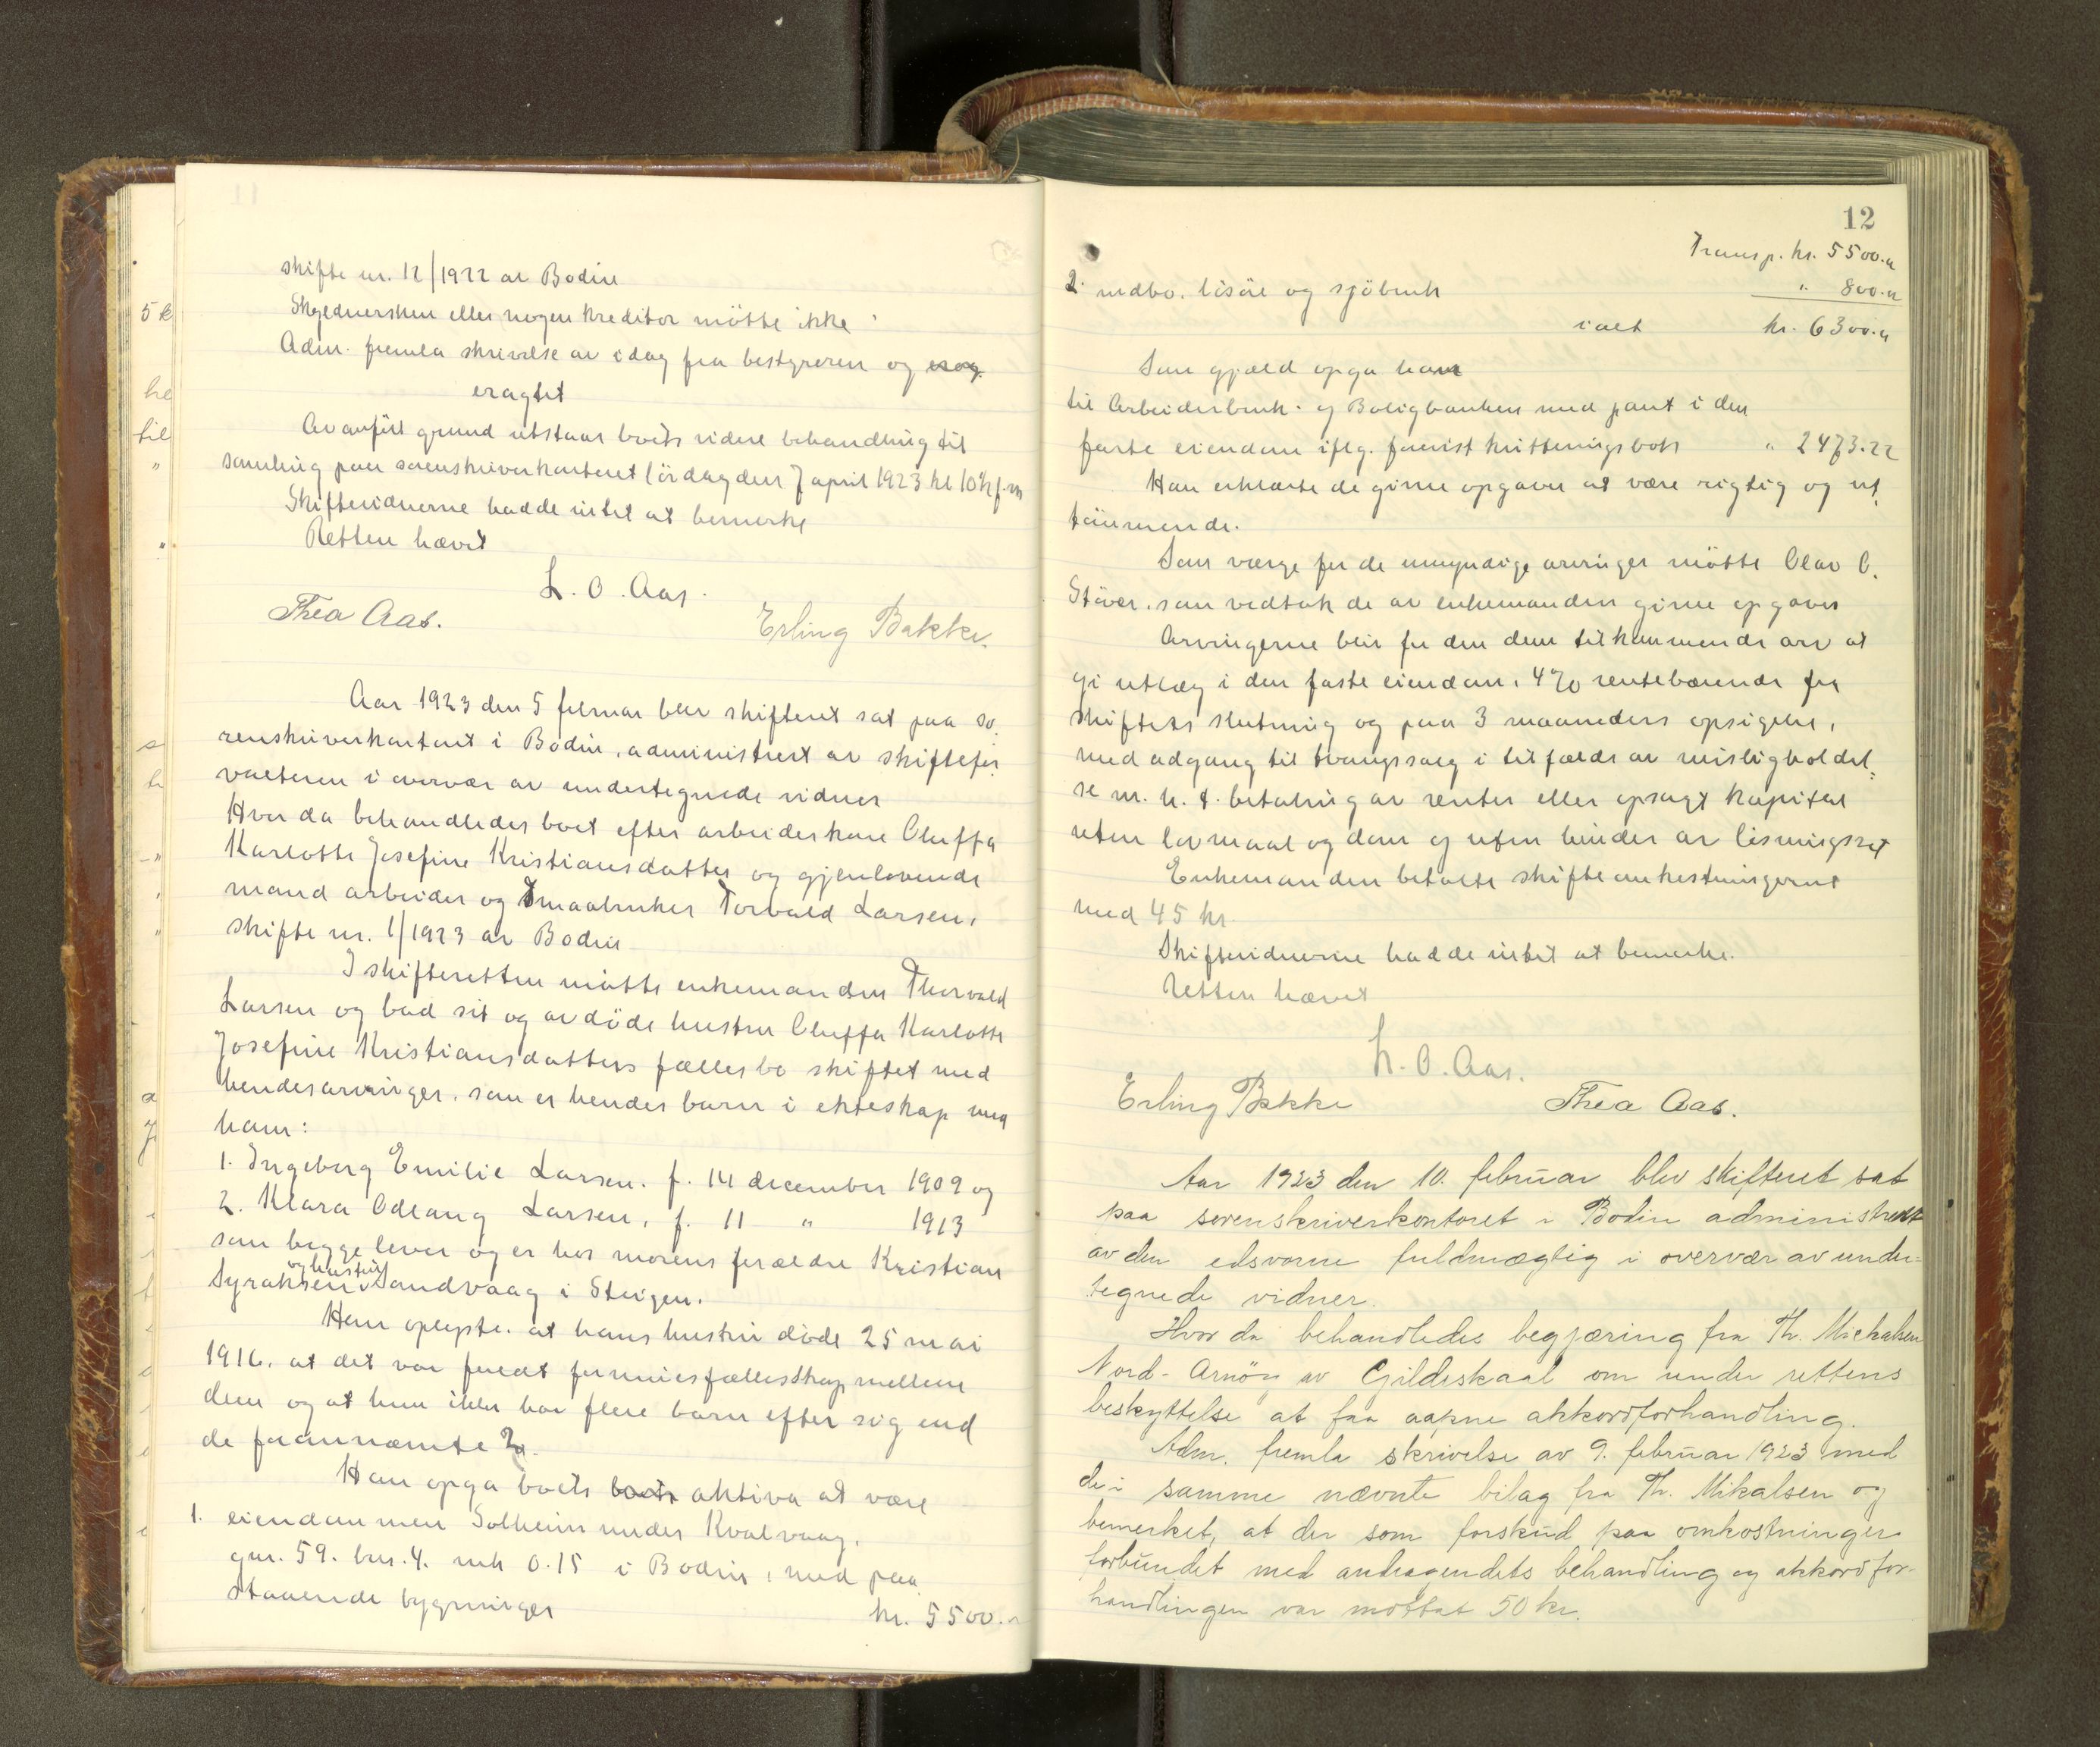 skifte nr. 12/1922 av Bodin
Skyldnersken eller nogen kreditor møtte ikke
Adm. fremla skrivelse av idag fra bestyreren og
eragtet
Av anført grund utstaar boets videre behandling til
samling paa sorenskriverkontoret lördag den 7 april 1923 kl 10½ f.m
Skiftevidnerne hadde intet at bemerke
Retten hævet
L. O. Aas.
Thea Aas.
Erling Bakke.
Aar 1923 den 5 februar blev skifteret sat paa so
renskriverkontoret i Bodin, administrert av skiftefor
valteren i overvær av undertegnede vidner
Hvor da behandledes boet efter arbeiderkone Oluffa
Karlotte Josefine Kristiansdatter og gjenlevende
mand arbeider og smaabruker Torvald Larsen,
skifte nr. 1/1923 av Bodin
I skifteretten møtte enkemanden Thorvald
Larsen og bad sit og avdöde hustru Oluffa Karlotte
Josefine Kristiansdatters fællesbo skiftet med
hendes arvinger, som er hendes barn i ekteskap med
ham:
1. Ingeborg Emilie Larsen. f. 14 december 1909 og
2. Klara Odlaug Larsen, f. 11 " 1913
som begge lever og er hos morens forældre Kristian
Syraksen og hustru Sandvaag i Steigen.
Han oplyste, at hans hustru döde 25 mai
1916, at det var fuldt formuesfællesskap mellem
dem og at hun ikke har flere barn efter sig end
de forannævnte 2.
Han opga boets boets aktiva at være
1. eiendommen Solheim under Kvalvaag,
gnr. 59. bnr. 4. mk 0.15 i Bodin, med paa
staaende bygninger kr. 5500.-
12
Transp. kr. 5500.-
2. indbo. lösöre og sjöbruk " 800.-
ialt kr. 6300.-
Som gjæld opga han
til Arbeiderbruk- og Boligbanken med pant i den
faste eiendom iflg. forevist kvitteringsbok " 2473.22
Han erklærte de givne opgaver at være rigtig og ut
tömmende.
Som værge for de umyndige arvinger møtte Olav O.
Stöver, som vedtok de av enkemanden givne opgaver
Arvingerne blir for den dem tilkommende arv at
gi utlæg i den faste eiendom, 4% rentebærende fra
skiftets slutning og paa 3 maaneders opsigelse,
med adgang til tvangssalg i tilfælde av misligholdel=
se m. h. t. betaling av renter eller opsagt kapital
uten lovmaal og dom og uten hinder av lösningsret
Enkemanden betalte skifteomkostningerne
med 45 kr.
Skiftevidnerne hadde intet at bemerke.
Retten hævet
L. O. Aas.
Erling Bakke
Thea Aas.
Aar 1923 den 10. februar blev skifteret sat
paa sorenskriverkontoret i Bodin administrert
av den edsvorne fuldmægtig i overvær av under-
tegnede vidner.
Hvor da behandledes begjæring fra Th. Mickalsen
Nord-Arnöy av Gildeskaal om under rettens
beskyttelse at faa aapne akkordforhandling.
Adm. fremla skrivelse av 9. februar 1923 med
de i samme nævnte bilag fra Th. Mikalsen og
bemerket, at der som forskud paa omkostninger
forbundet med andragendets behandling og akkordfor-
handlingen var mottat 50 kr.